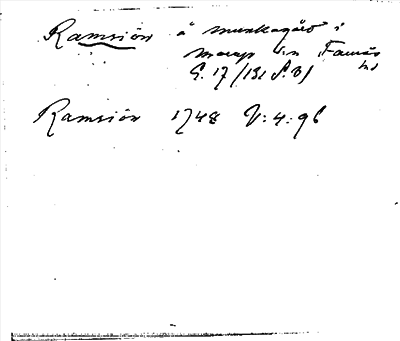 Ramsiön å munkagärd i
Marap s:n Faurås
hd
G. 17/131 S. 81
Ramsiön 1748 V: 4: 96